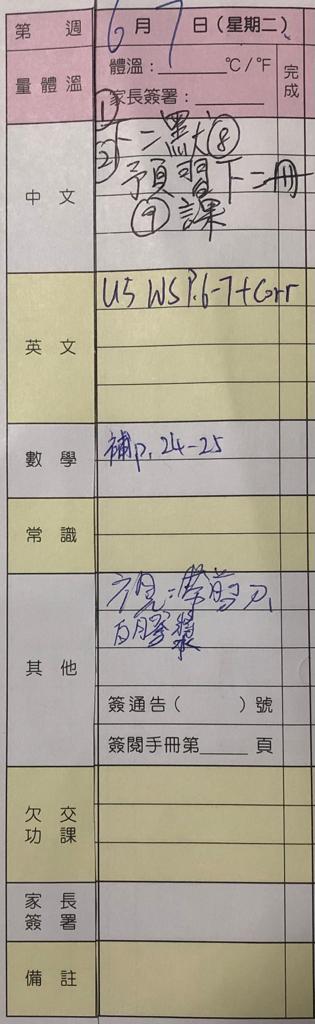 第 週 6月7日(星期二)
量體溫 體溫:______℃/℉ 完成
家長簽署:______
中文 ①下二默⑧
②預習下二冊
⑨課
英文 U5 WS P.6-7+Corr
數學 補p.24-25
常識
其他 視:帶剪刀
白膠漿
簽通告( )號
簽閱手冊第_____頁
欠交功課
家長簽署
備註